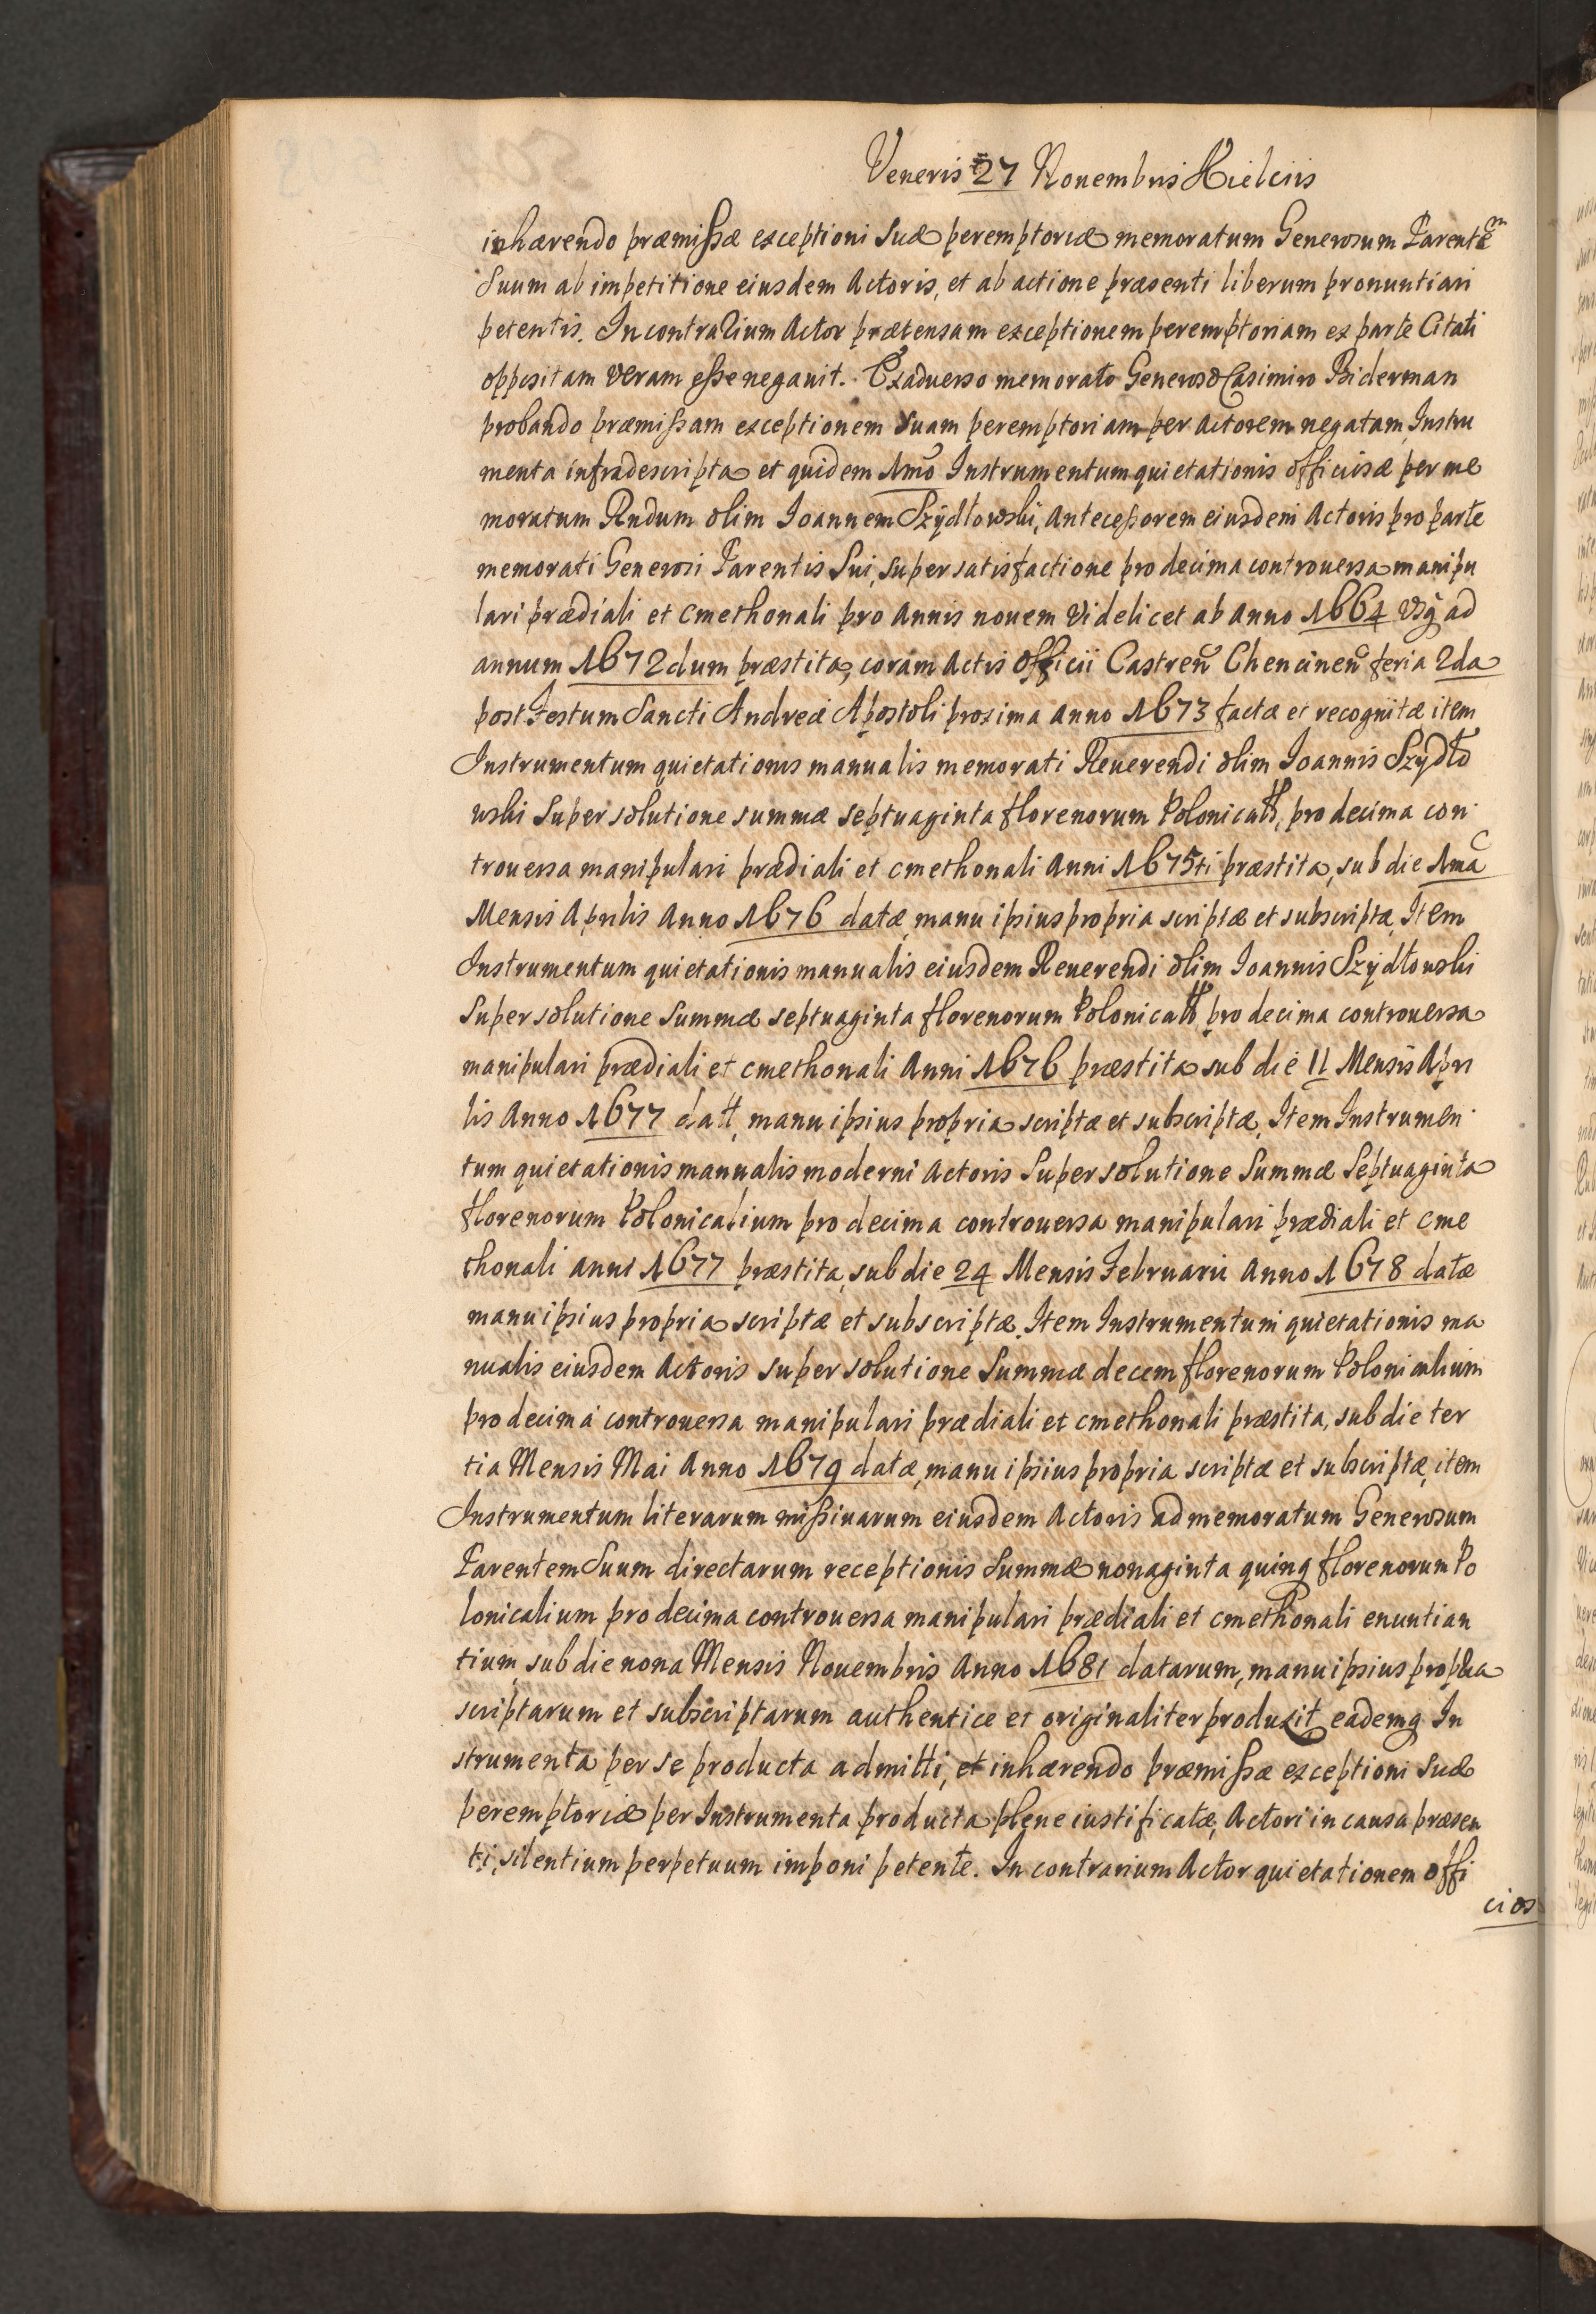 Veneris 27 Nouembris Kielciis
inhærendo præmissæ exceptioni suæ peremptoriæ memoratum Generosum Parentẽm
Suum ab impetitione eiusdem Actoris, et ab actione præsenti liberum pronuntiari
petentis. In contrarium Actor prætensam exceptionem peremptoriam ex parte Citati
oppositam veram esse negauit. Exaduerso memorato Generoso Casimiro Biderman
probando præmissam exceptionem suam peremptoriam per Actorem negatam, Instru
menta infradescripta et quidem 1mo Instrumentum quietationis officiosæ per me
moratum Rndum olim Ioannem Szÿdłowski, antecessorem eiusdem Actoris pro parte
memorati Generosi Parentis Sui, super satisfactione pro decima controuersa manipu
lari prædiali et cmethonali pro annis nouem videlicet ab anno 1664 vsq̃ ad
annum 1672dum præstita, coram Actis Officii Castreñ Chencineñ feria 2da
post Festum Sancti Andreæ Apostoli proxima anno 1673 factæ et recognitæ, item
Instrumentum quietationis manualis memorati Reuerendi olim Ioannis Szydło
wski super solutione summæ septuaginta florenorum PolonicaĦ, pro decima con
trouersa manipulari prædiali et cmethonali Anni 1675ti præstita, sub die 1ma
Mensis Aprilis Anno 1676 datæ, manu ipsius propria scriptæ et subscriptæ, Item
Instrumentum quietationis manualis eiusdem Reuerendi olim Ioannis Szÿdłowski
super solutione Summæ septuaginta florenorum PolonicaĦ pro decima controuersa
manipulari prædiali et cmethonali Anni 1676 præstita sub die 11 Mensis Apri
lis Anno 1677 datt, manu ipsius propria scriptæ et subscriptæ, Item Instrumen
tum quietationis manualis moderni Actoris super solutione Summæ Septuaginta
florenorum Polonicalium pro decima controuersa manipulari prædiali et cme
thonali anni 1677 præstita, sub die 24 Mensis Februarii Anno 1678 datæ
manu ipsius propria scriptæ et subscriptæ. Item Instrumentum quietationis ma
nualis eiusdem Actoris super solutione Summæ decem florenorum Polonicalium
pro decima controuersa manipulari prædiali et cmethonali præstita, sub die ter
tia Mensis Mai Anno 1679 datæ, manu ipsius propria scriptæ et subscriptæ, item
Instrumentum literarum missiuarum eiusdem Actoris ad memoratum Generosum
Parentem Suum directarum receptionis Summæ nonaginta quinq florenorum Po
lonicalium pro decima controuersa manipulari prædiali et cmethonali enuntian
tium, sub die nona Mensis Nouembris Anno 1681 datarum, manu ipsius propria
scriptarum et subscriptarum authentice et originaliter produxit, eademq In
strumenta per se producta admitti, et inhærendo præmissæ exceptioni suæ
peremptoriæ per Instrumenta producta plene iustificatæ, Actori in causa præsen
ti, silentium perpetuum imponi petente. In contrarium Actor quietationem offi
cios